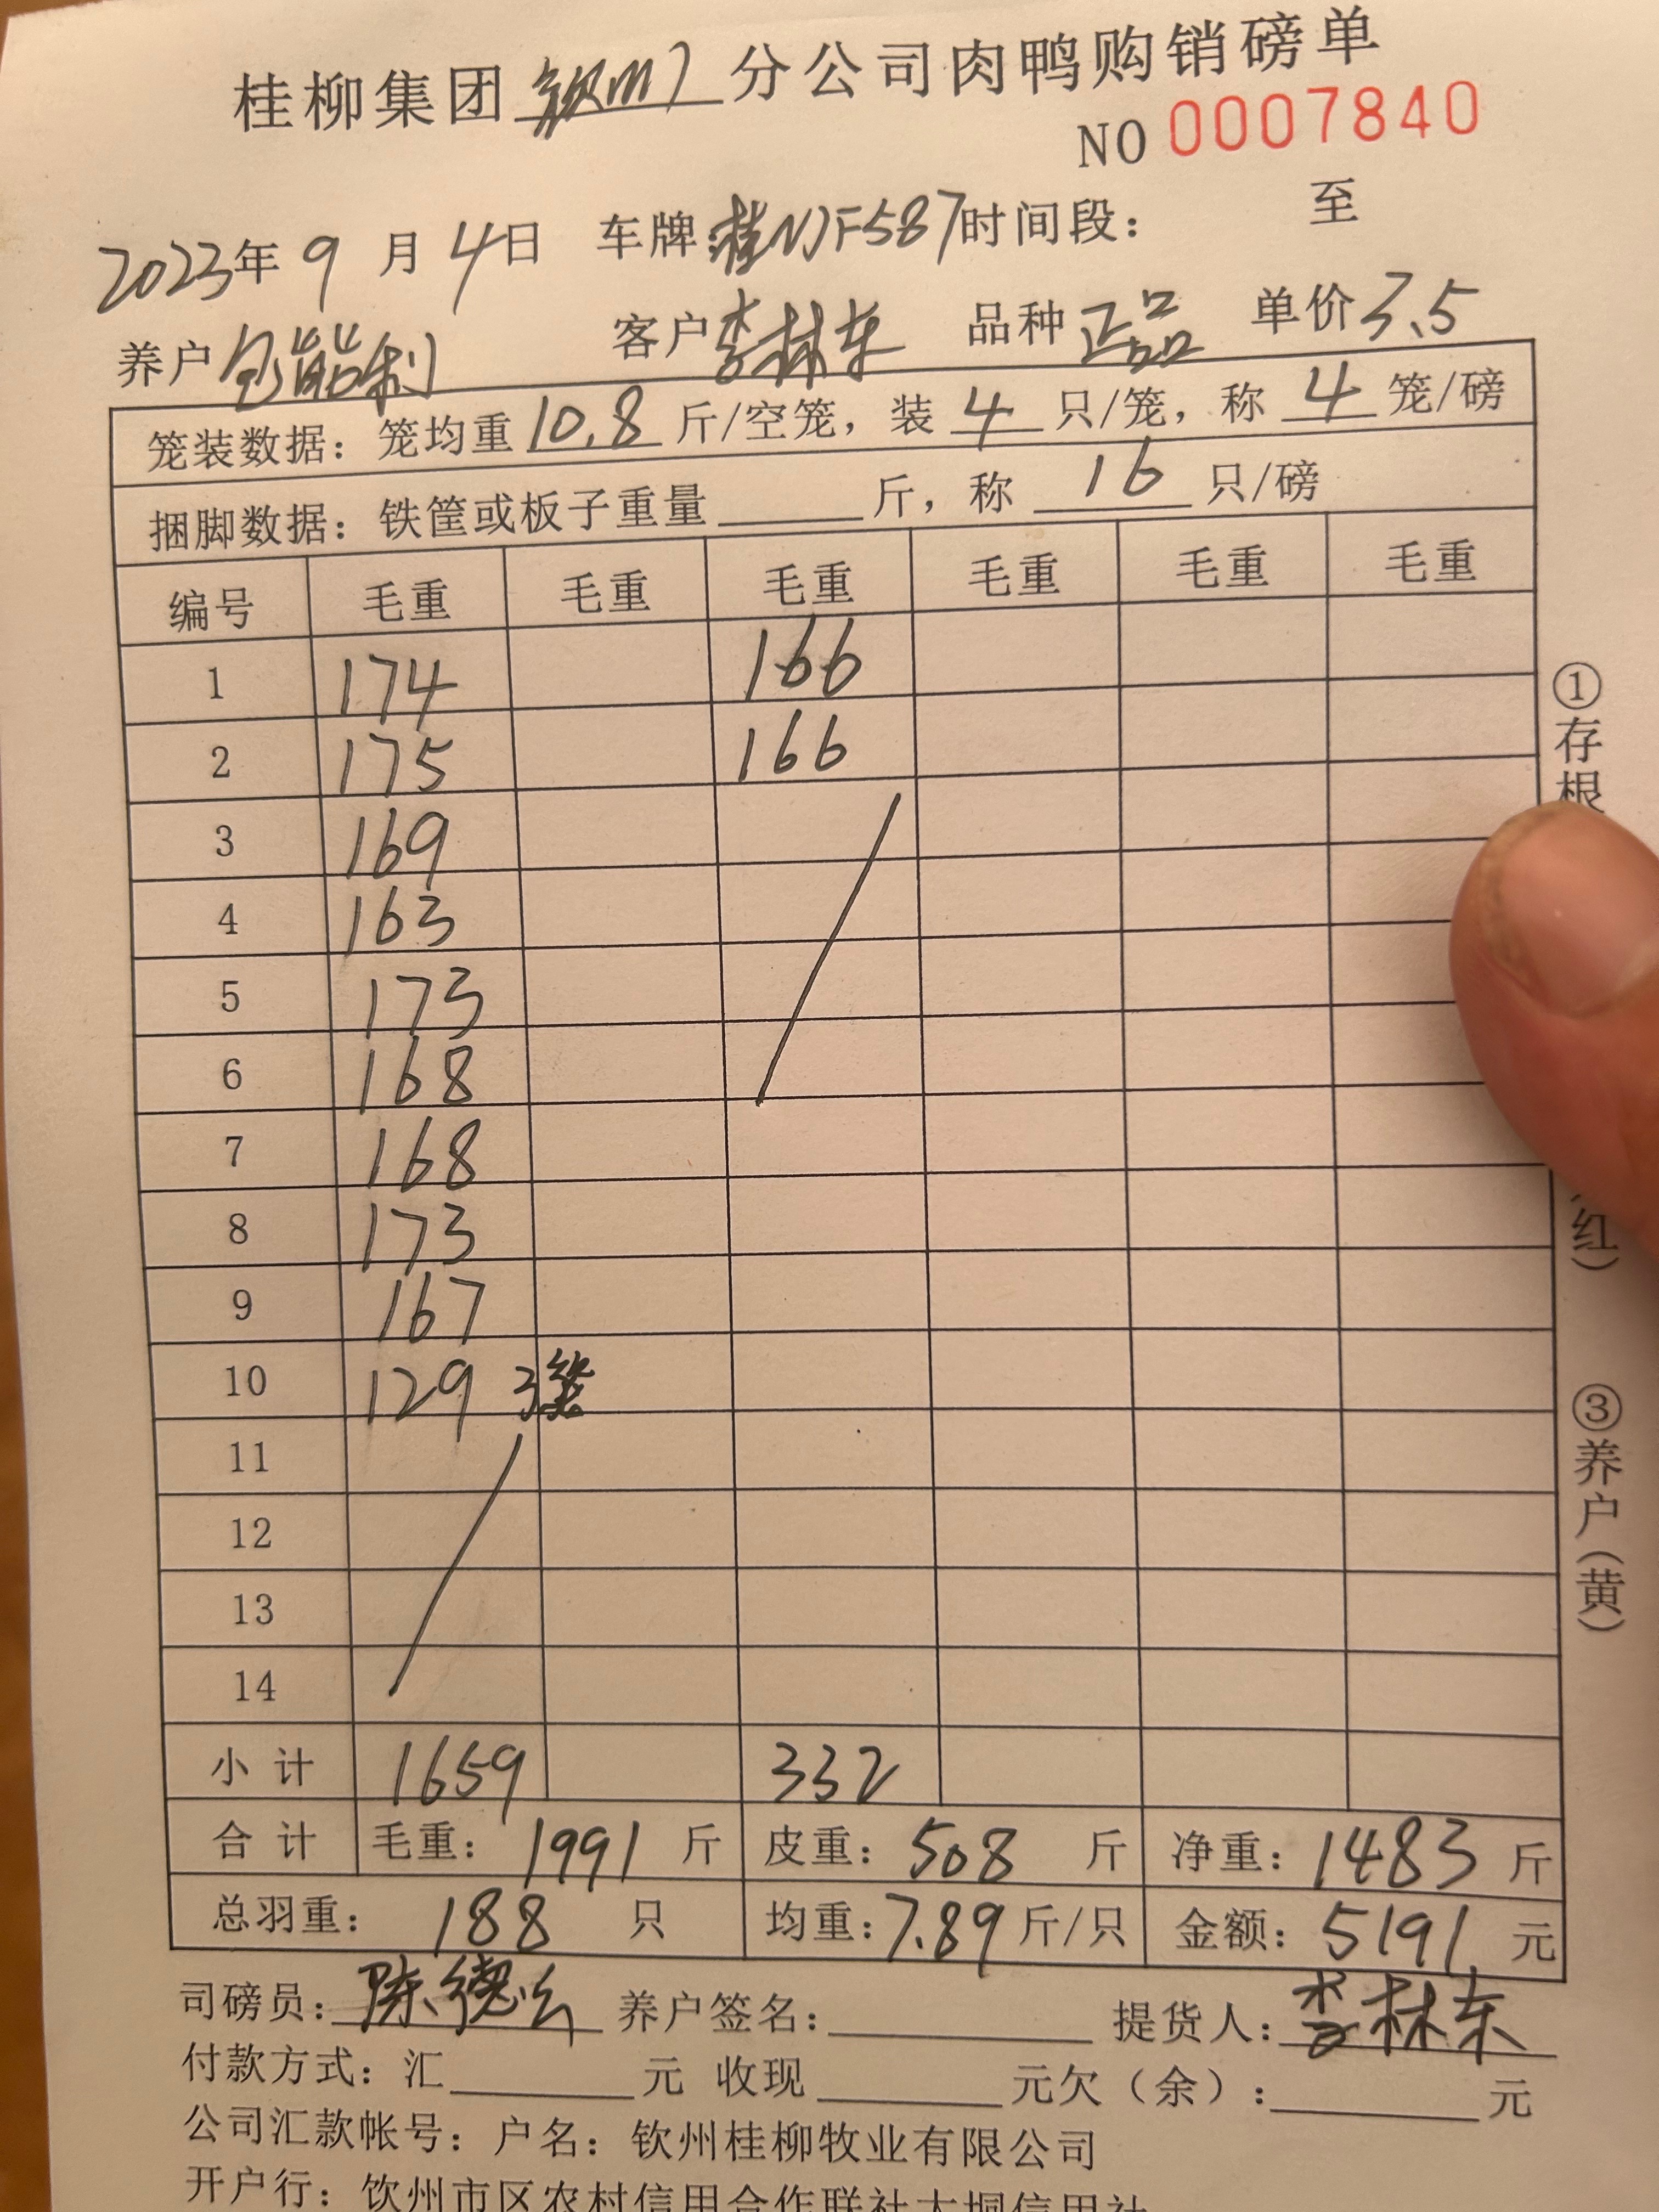 桂柳集团 钦州 分公司肉鸭购销磅单
NO 0007840
2023年 9 月 4日 车牌:桂NJF587时间段: 至
养户 客户 李林东 品种 正品 单价 3.5
笼装数据: 笼均重 10.8 斤/空笼, 装 4 只/笼, 称 4 笼/磅
捆脚数据: 铁筐或板子重量 斤, 称 16 只/磅
编号 毛重 毛重 毛重 毛重 毛重 毛重
1 174 166
2 175 166
3 169
4 163
5 173
6 168
7 168
8 173
9 167
10 129 3笼
11
12
13
14
小 计 1659 332
合 计 毛重: 1991 斤 皮重: 508 斤 净重: 1483 斤
总羽重: 188 只 均重: 7.89 斤/只 金额: 5191 元
司磅员: 养户签名: 提货人: 李林东
付款方式: 汇 元 收现 元欠(余): 元
公司汇款帐号: 户名: 钦州桂柳牧业有限公司
开户行: 钦州市区农村信用合作联社大垌信用社
①存根
红)
③养户(黄)